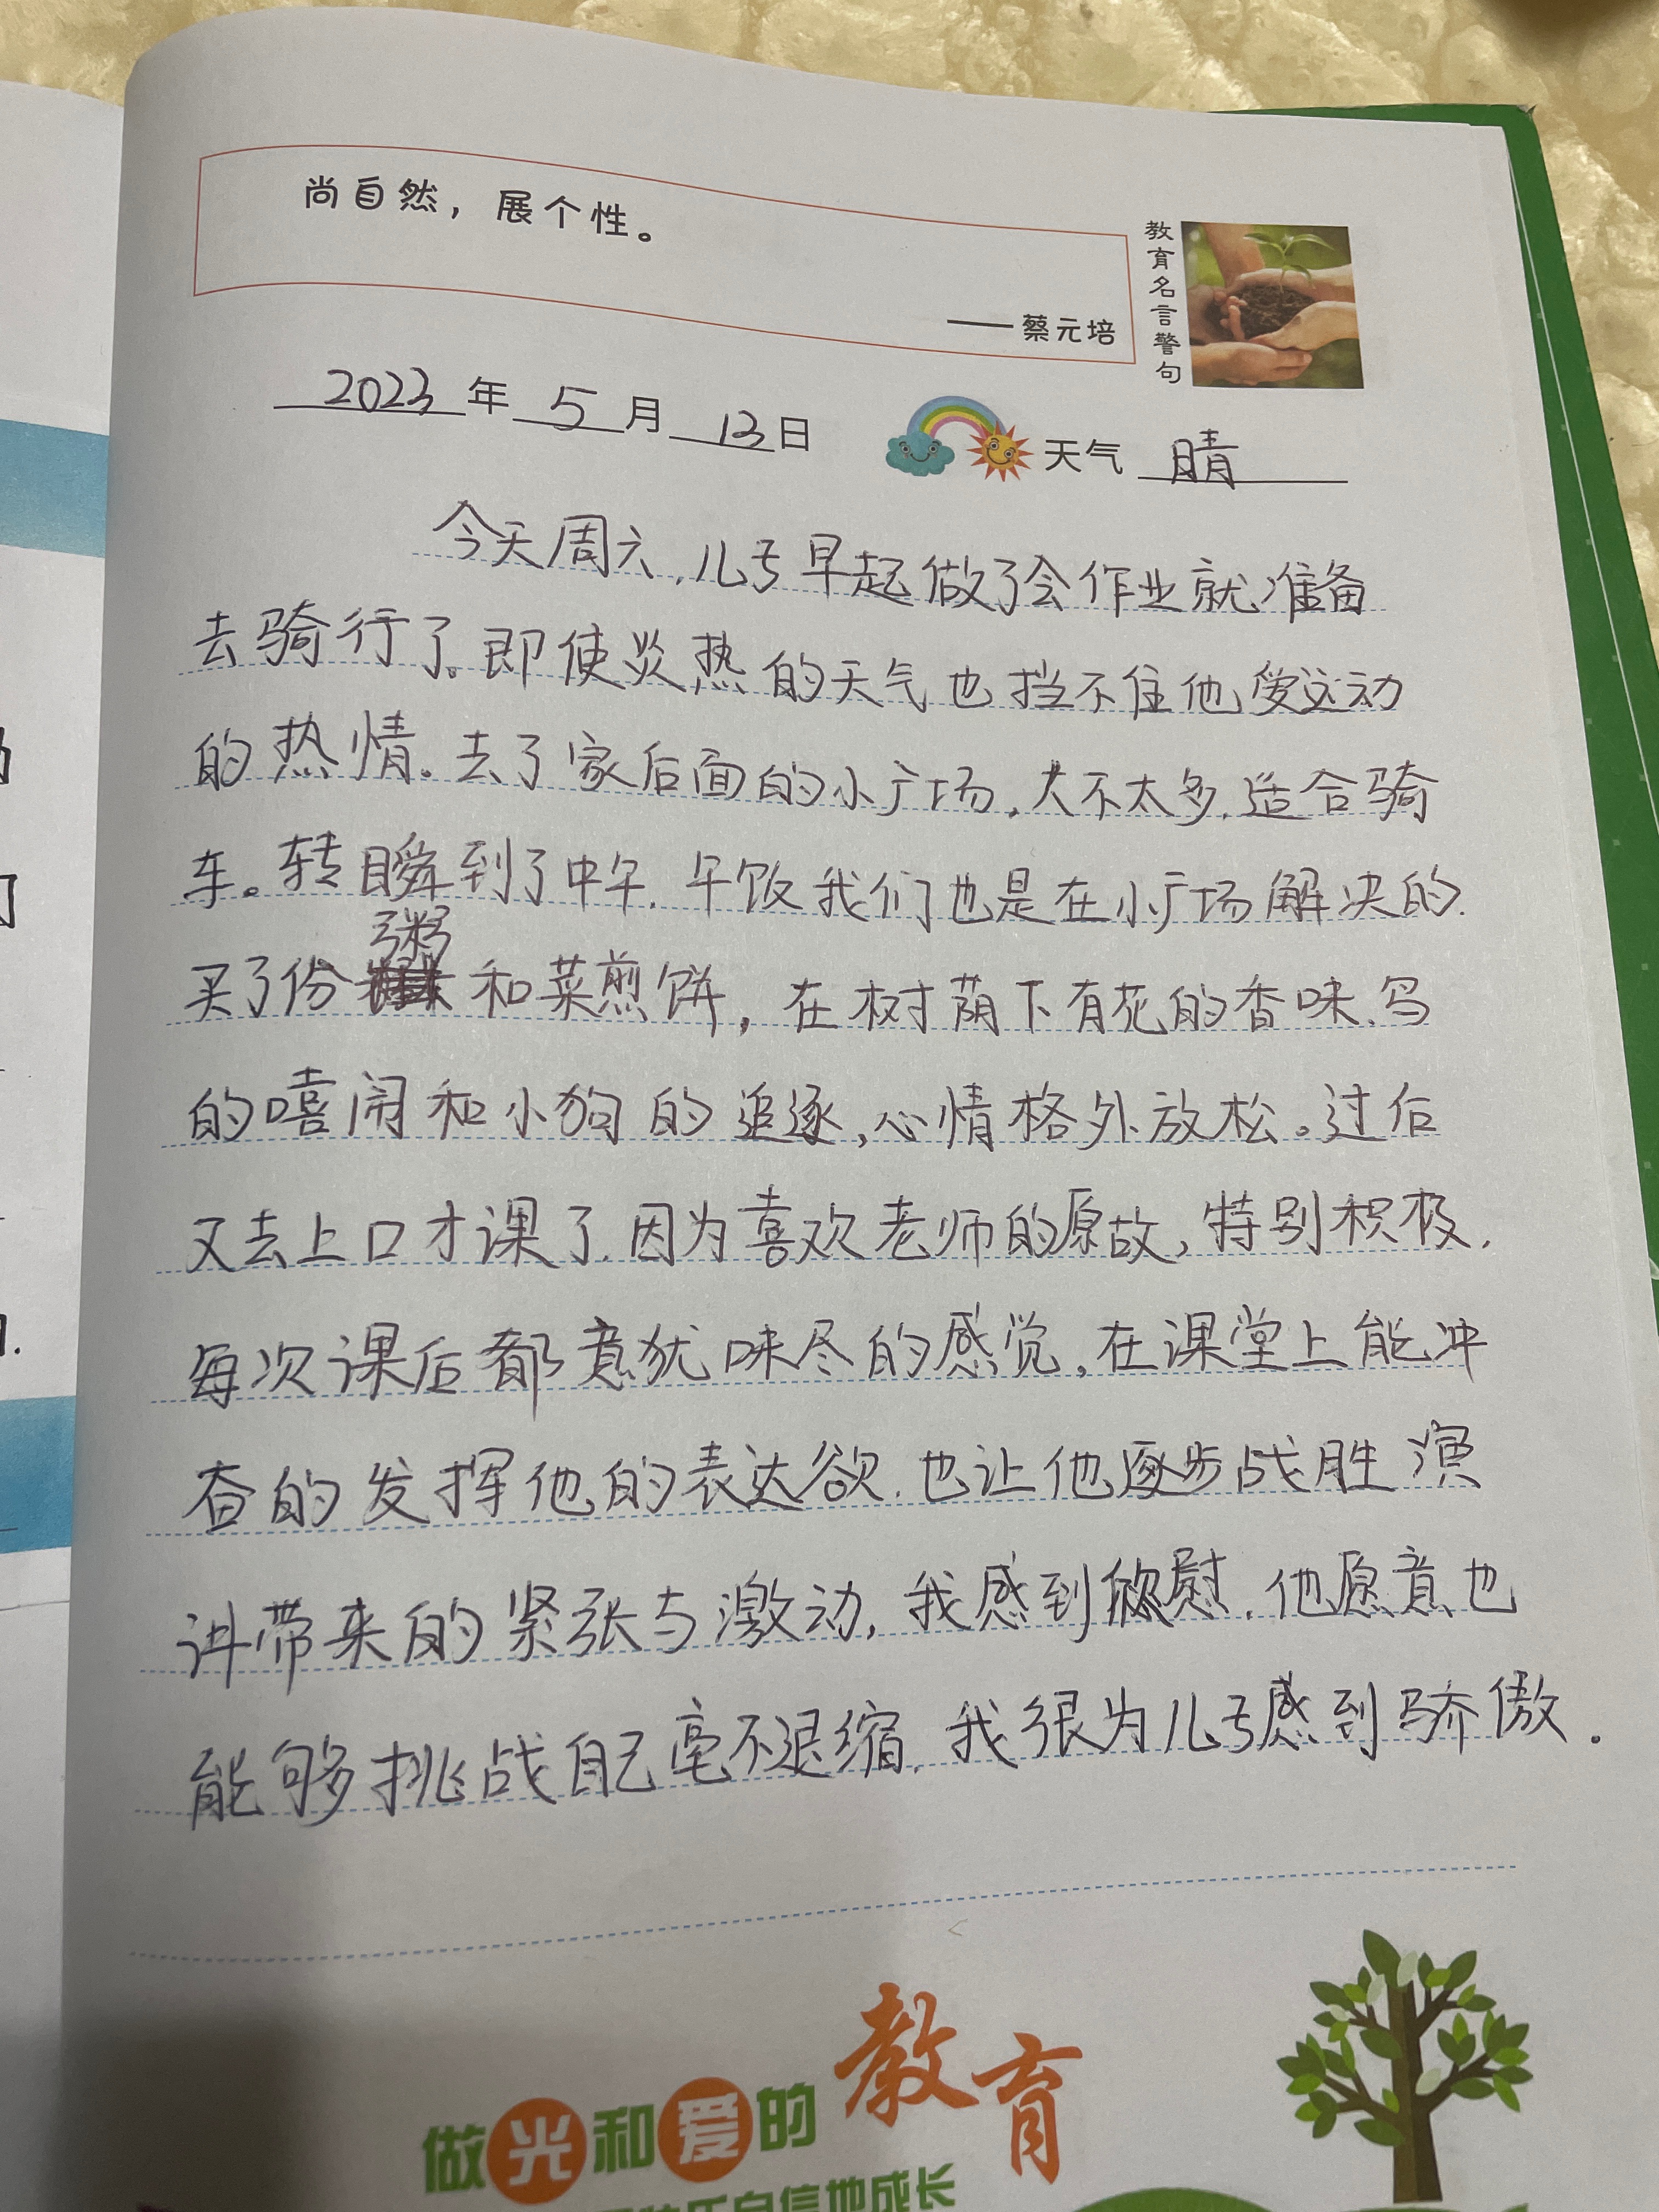 尚自然，展个性。
——蔡元培
教育名言警句
2023年5月13日 天气 晴
今天周六,儿子早起做了会作业就准备
去骑行了。即使炎热的天气也挡不住他爱运动
的热情。去了家后面的小广场,人不太多,适合骑
车。转瞬到了中午,午饭我们也是在小广场解决的.
买了份粥和菜煎饼，在树荫下有花的香味、鸟
的嘻闹和小狗的追逐,心情格外放松。过后
又去上口才课了,因为喜欢老师的原故,特别积极.
每次课后都意犹味尽的感觉,在课堂上能冲
奋的发挥他的表达欲.也让他逐步战胜演
讲带来的紧张与激动,我感到欣慰.他愿意也
能够挑战自己毫不退缩,我很为儿子感到骄傲.
做光和爱的教育
自信地成长